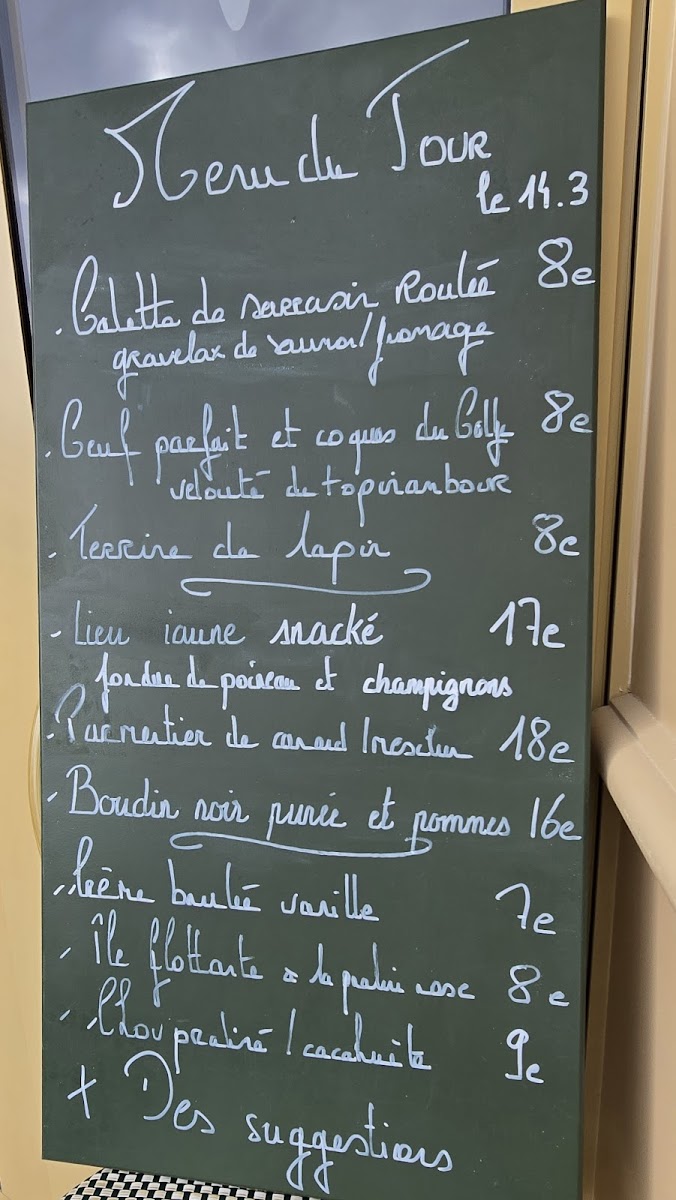 Menu du Jour
le 14.3
. Galette de sarrasin Roulée 8e
gravelax de saumon/fromage
. Oeuf parfait et coques du Golfe 8e
velouté de topinambour
. Terrine de lapin 8e
- Lieu jaune snacké 17e
fondue de poireau et champignons
. Parmentier de canard / mesclun 18e
- Boudin noir purée et pommes 16e
- Crème brulée vanille 7e
- Île flottante à la praline rose 8e
- Chou praliné / cacahuète 9e
+ Des suggestions